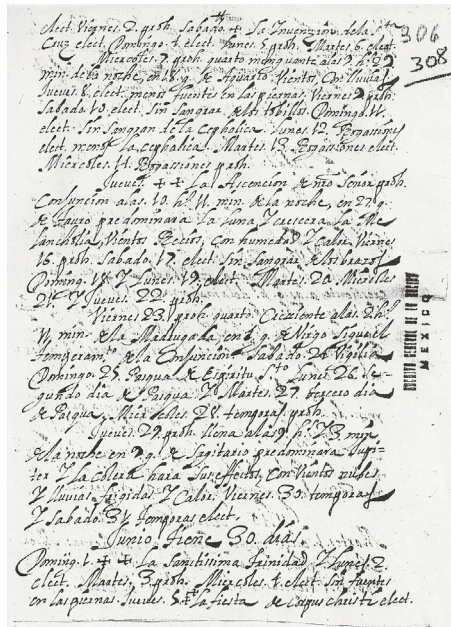 elect. Viernes. 2. proh. Sabado. ++ La Invenzion de la Sta
Cruz elect. Domingo. 4. elect. Lunes. 5. proh. Martes. 6. elect.
306
Miercoles. 7. proh. quarto menguante a las 9. h. 22
308
min. de la noche, en 18. g. de Aquario Vientos, Con lluvias
Jueves. 8. elect. menos fuentes en las piernas. Viernes 9. proh.
Sabado. 10. elect. Sin Sangrar de los tobillos. Domingo. 11.
elect. Sin Sangrar de la Cephalica. Lunes. 12. Rogassiones
elect. menos la Cephalica. Martes. 13. Rogassiones elect.
Miercoles. 14. Rogassiones proh.
Jueves. ++ La Ascencion de nro Señor proh.
Conjuncion a las. 10. hs. 11. min. de la noche, en 27. g.
de Tauro predominara la Luna, Y crescera la Me-
lancholia, Vientos Recios, Con humedad Y Calor, Viernes
16. proh. Sabado. 17. elect. Sin Sangrar de los brazos
Doming. 18. Y Lunes. 19. elect. Martes. 20. Miercoles
21. Y Jueves. 22. proh.
Viernes. 23. proh. quarto. Creziente a las. 2. hs.
11. min. de la Madrugada, en 6. g. de Virgo Sigue el
temperamto. de la Conjuncion. Sabado. 24. Vigilia
Domingo. 25. Pasqua de Espiritu Sto Lunes. 26. Se-
gundo dia de Pasqua. Y Martes. 27. tercero dia
de Pasqua. Miercoles. 28. temporas proh.
Jueves. 29. proh. llena a las 9. hs. Y 3. min.
de la noche en 9. g. de Sagitario predominara Jupi-
ter Y la Colera hara Sus effectos, Con Vientos nubes
Y lluvias frigidas, Y Calor. Viernes. 30. temporas
Y Sabado. 31. temporas elect.
Junio tiene 30. dias.
Doming. 1. ++ La Sanctissima Trinidad Y Lunes 2.
elect. Martes. 3. proh. Miercoles. 4. elect. Sin fuentes
en las piernas. Jueves. 5. ++ La fiesta de Corpus Christi elect.
ARCHIVO GENERAL DE LA NACION
MEXICO